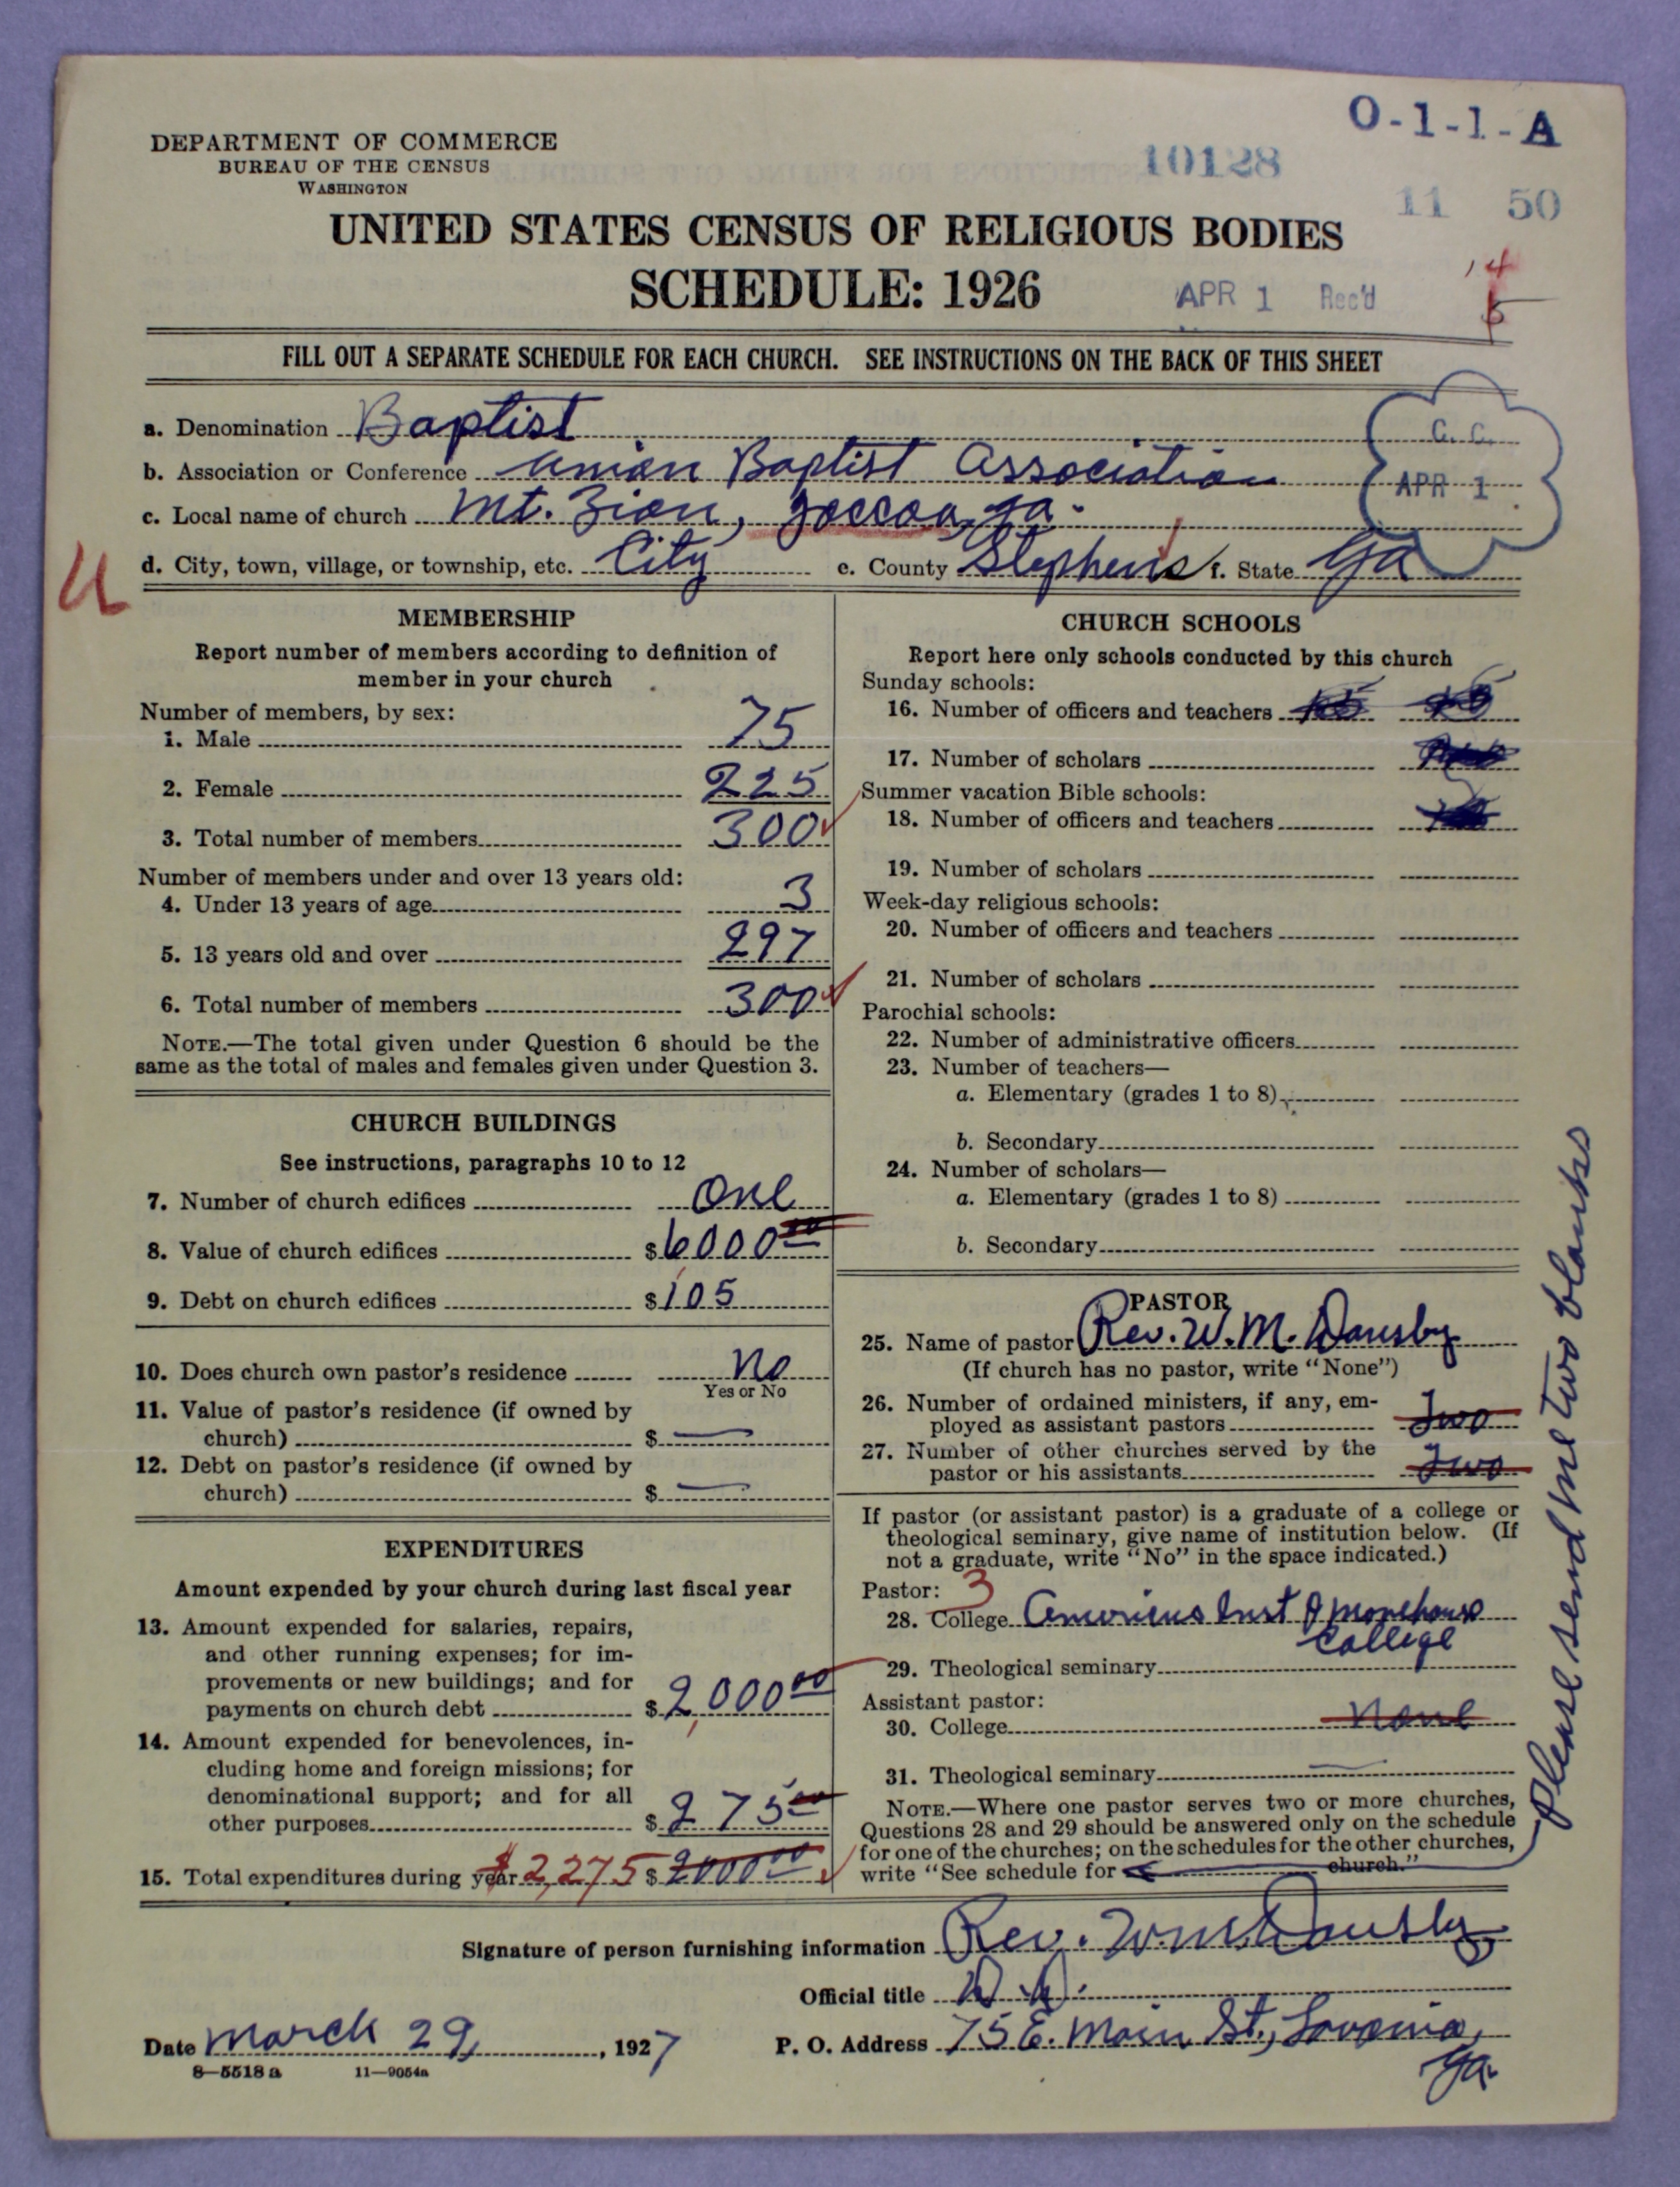 O-1-1-A
DEPARTMENT OF COMMERCE
BUREAU OF THE CENSUS
WASHINGTON
10128
11 50
UNITED STATES CENSUS OF RELIGIOUS BODIES
SCHEDULE: 1926
APR 1 Rec'd
14
5
FILL OUT A SEPARATE SCHEDULE FOR EACH CHURCH. SEE INSTRUCTIONS ON THE BACK OF THIS SHEET
a. Denomination Baptist
G. C.
b. Association or Conference Union Baptist Association
APR 1
c. Local name of church Mt. Zion, Toccoa, Ga.
d. City, town, village, or township, etc. City e. County Stephens f. State Ga
U
MEMBERSHIP
Report number of members according to definition of
member in your church
Number of members, by sex:
1. Male 75
2. Female 225
3. Total number of members 300
Number of members under and over 13 years old:
4. Under 13 years of age 3
5. 13 years old and over 297
6. Total number of members 300
NOTE.—The total given under Question 6 should be the
same as the total of males and females given under Question 3.
CHURCH BUILDINGS
See instructions, paragraphs 10 to 12
7. Number of church edifices One
8. Value of church edifices $6000 00
9. Debt on church edifices $105
10. Does church own pastor's residence No
Yes or No
11. Value of pastor's residence (if owned by
church) $ —
12. Debt on pastor's residence (if owned by
church) $ —
EXPENDITURES
Amount expended by your church during last fiscal year
13. Amount expended for salaries, repairs,
and other running expenses; for im-
provements or new buildings; and for
payments on church debt $2,000 00
14. Amount expended for benevolences, in-
cluding home and foreign missions; for
denominational support; and for all
other purposes $275 00
15. Total expenditures during year $2,275 $2000 00
CHURCH SCHOOLS
Report here only schools conducted by this church
Sunday schools:
16. Number of officers and teachers
17. Number of scholars
Summer vacation Bible schools:
18. Number of officers and teachers
19. Number of scholars
Week-day religious schools:
20. Number of officers and teachers
21. Number of scholars
Parochial schools:
22. Number of administrative officers
23. Number of teachers—
a. Elementary (grades 1 to 8)
b. Secondary
24. Number of scholars—
a. Elementary (grades 1 to 8)
b. Secondary
PASTOR
25. Name of pastor Rev. W. M. Dansby
(If church has no pastor, write "None")
26. Number of ordained ministers, if any, em-
ployed as assistant pastors Two
27. Number of other churches served by the
pastor or his assistants Two
If pastor (or assistant pastor) is a graduate of a college or
theological seminary, give name of institution below. (If
not a graduate, write "No" in the space indicated.)
Pastor: 3
28. College Americus Inst & Morehouse
College
29. Theological seminary
Assistant pastor:
30. College None
31. Theological seminary —
NOTE.—Where one pastor serves two or more churches,
Questions 28 and 29 should be answered only on the schedule
for one of the churches; on the schedules for the other churches,
write "See schedule for church."
Please send me two blanks
Signature of person furnishing information Rev. W. M. Dansby
Official title D. D.
Date March 29, 1927 P. O. Address 75 E. Main St., Lavonia,
Ga.
8—5518 a 11—9054a